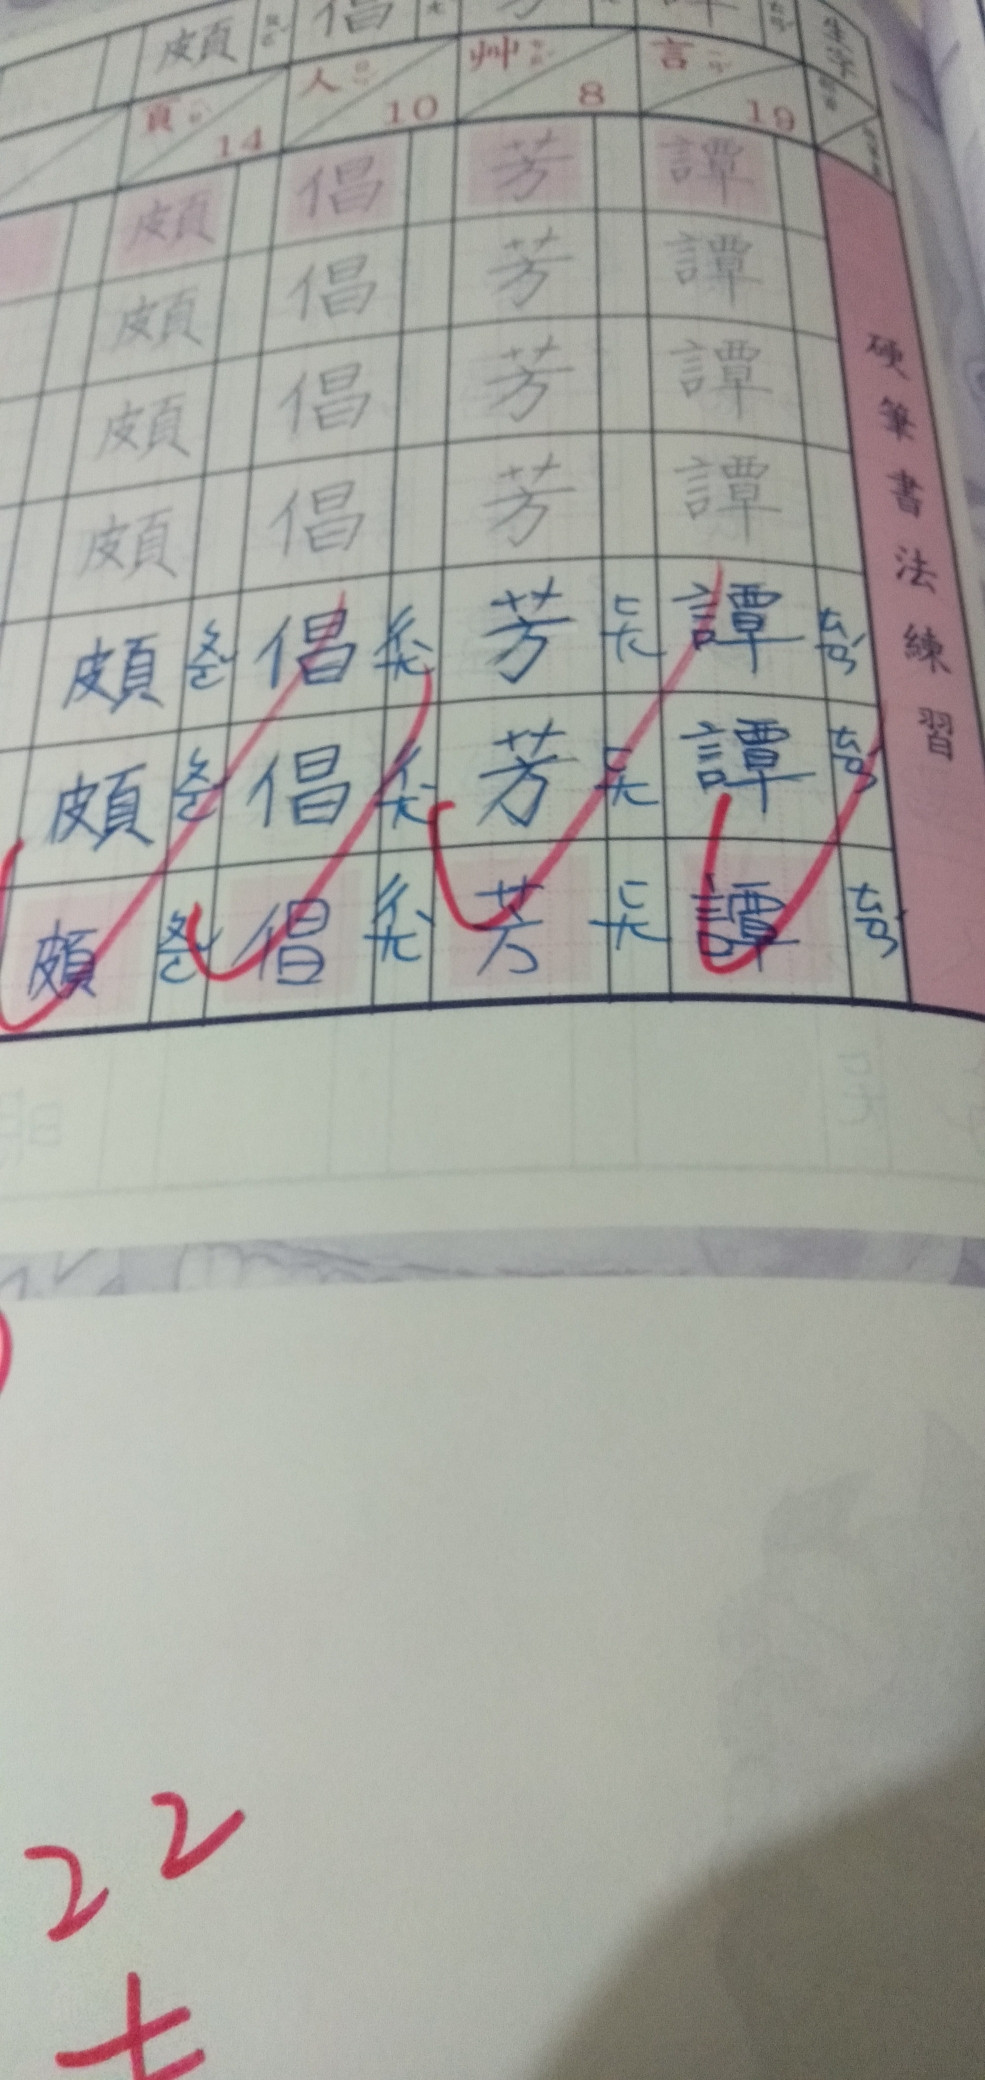 生字
硬筆書法練習
譚
言
19
譚
譚
譚
譚
譚 ㄊㄢˊ
譚 ㄊㄢˊ
譚 ㄊㄢˊ
芳
艸
8
芳
芳
芳
芳
芳 ㄈㄤ
芳 ㄈㄤ
芳 ㄈㄤ
倡
人
10
倡
倡
倡
倡
倡 ㄔㄤˋ
倡 ㄔㄤˋ
倡 ㄔㄤˋ
頗
頁
14
頗
頗
頗
頗
頗 ㄆㄛˇ
頗 ㄆㄛˇ
頗 ㄆㄛˇ
22